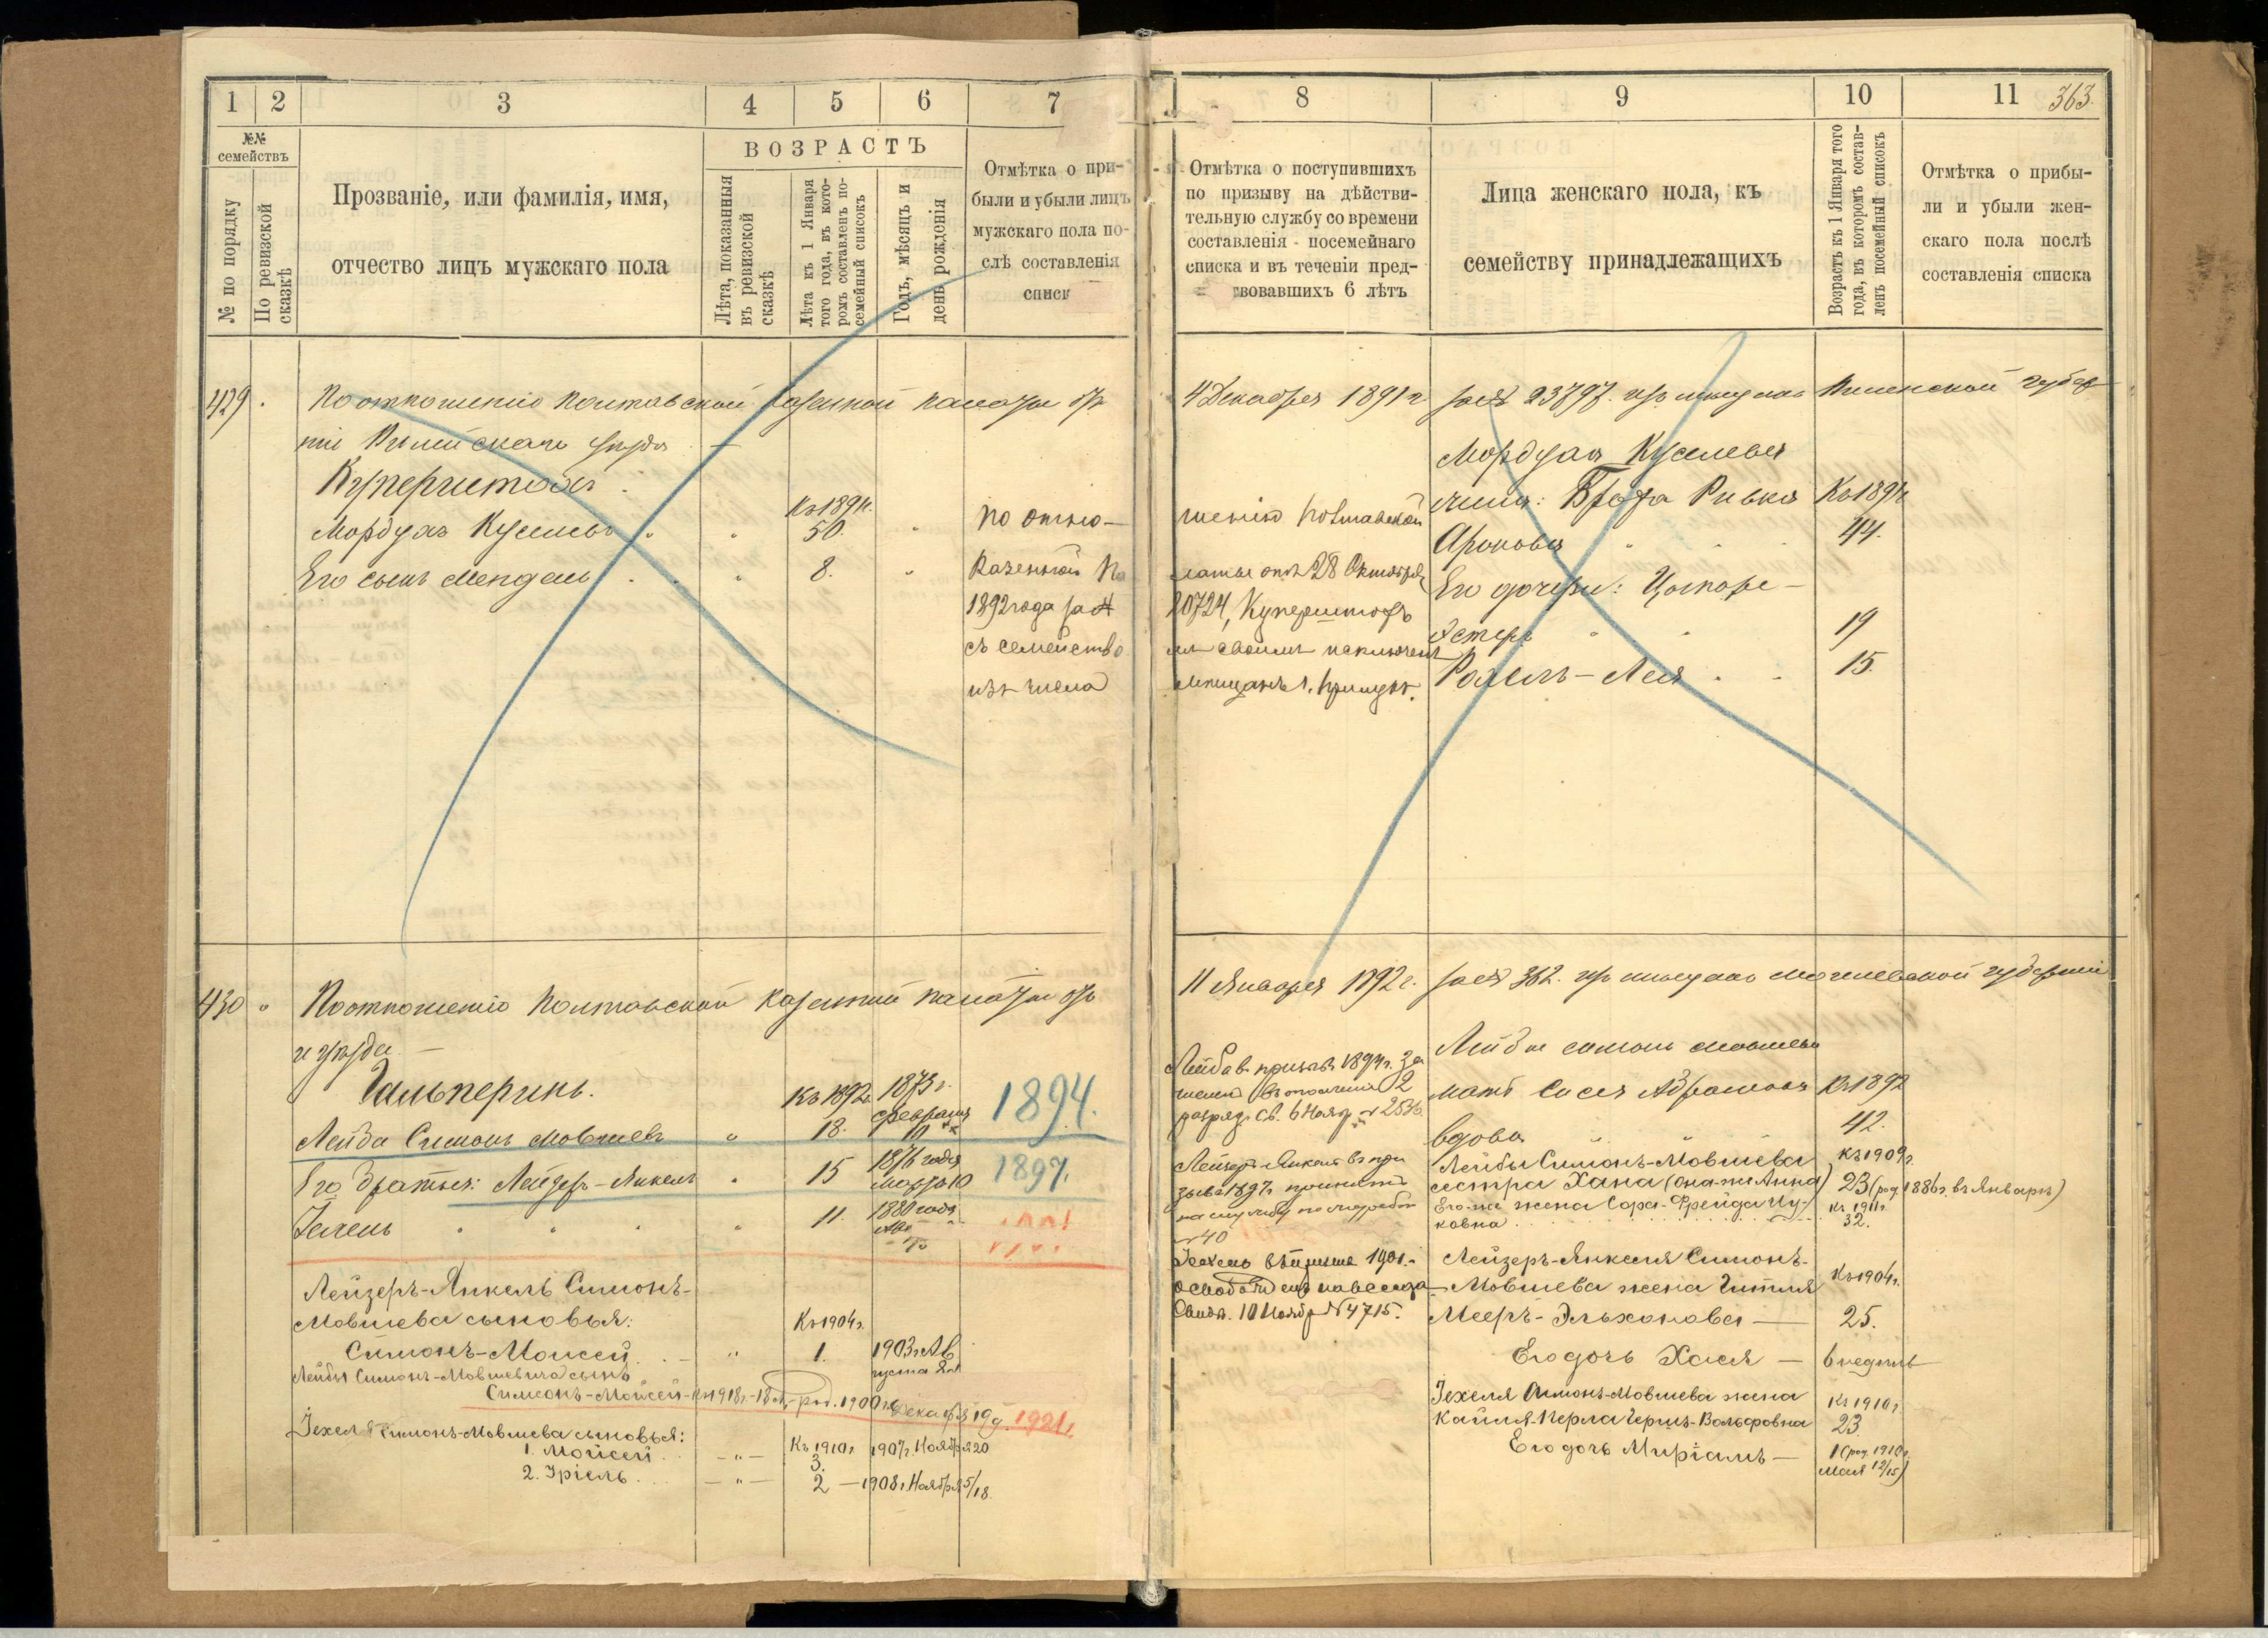 1 2 3 4 5 6 7
№№ семействъ
№ по порядку
По ревизской сказкѣ
Прозваніе, или фамилія, имя,
отчество лицъ мужскаго пола
ВОЗРАСТЪ
Лѣта, показанныя
въ ревизской
сказкѣ
Лѣта къ 1 Января
того года, въ кото-
ромъ составленъ по-
семейный списокъ
Годъ, мѣсяцъ и
день рожденія
Отмѣтка о при-
были и убыли лицъ
мужскаго пола по-
слѣ составленія
списк
429.
По отношенію Полтавской Казенной палаты отъ
ніи Вилейскаго уѣзда —
Куперштохъ
Мордухъ Кусилевъ " " Къ 1891 г. 50. "
Его сынъ Мендель " " 8. "
По отно-
Казенной Па
1892 года за №
съ семейство
изъ числа
430 "
По отношенію Полтавской Казенной палаты отъ
и уѣзда —
Гальперинъ.
Лейба Симонъ Мовшевъ " Къ 1892 г. 18. 1873 г. Февраля 10 1894.
Его братья: Лейзеръ-Янкель " 15 1876 года Марта 10 1897.
Іехель " " " " 11. 1880 года
Лейзеръ-Янкель Симонъ-
Мовшева сыновья: Къ 1904 г.
Симонъ-Моисей . . — " 1. 1903 г. Ав
густа
Лейбы Симонъ-Мовшевича сынъ
Симеонъ-Мойсей-къ 1918 г.-18 л. род. 1900 г. Декабря 19 д. 1921 г.
Іехеля Симонъ-Мовшева сыновья:
1. Мойсей . . — " — Къ 1910 г. 3. 1907 г. Ноября 20
2. Уріель . . — " — 2 — 1908 г. Ноября 5/18.
8 9 10 11 363.
Отмѣтка о поступившихъ
по призыву на дѣйстви-
тельную службу со времени
составленія посемейнаго
списка и въ теченіи пред-
вовавшихъ 6 лѣтъ
Лица женскаго пола, къ
семейству принадлежащихъ
Возрастъ къ 1 Января того
года, въ которомъ состав-
ленъ посемейный списокъ
Отмѣтка о прибы-
ли и убыли жен-
скаго пола послѣ
составленія списка
4 Декабря 1891 г за № 23797. изъ мѣщанъ Виленской губер
Мордуха Кусилева
жена: Ривка Къ 1891 г.
Аронова " " " 44.
Его дочери: Ципоре-
Эстеръ " " 19
Рохель-Лея " " 15.
шенію Полтавской
латы отъ 28 Октября
20724, Куперштохъ
мъ своимъ исключенъ
мѣщанъ г. Прилукъ.
11 Января 1892 г. за № 362. изъ мѣщанъ Могилевской губерніи
Лейбы Симонъ Мовшева
мать Сися Абрамова Къ 1892
вдова " " 42.
Лейба въ призывъ 1894 г. за
численъ въ ополченіе 2
разряда св. 6 Нояб. № 2536
Лейзеръ-Янкель въ при
зывъ 1897 г. принятъ
на службу по жребію
№ 40
Іехель въ призывъ 1901 г.
освобожденъ навсегда
Свид. 10 Ноябр № 4715.
Лейбы Симонъ-Мовшева Къ 1909 г.
сестра Хана (она-же Анна) 23 (род. 1886 г. въ Январѣ)
Его-же жена Сора-Фрейда Ицковна . . . Къ 1911 г. 32.
Лейзеръ-Янкеля Симонъ-
Мовшева жена Гитля Къ 1904 г.
Мееръ-Эльхонова — 25.
Его дочь Хася — 6 недѣль
Іехеля Симонъ-Мовшева жена Къ 1910 г.
Кайля-Перла Герцъ-Вольфовна 23.
Его дочь Миріамъ — 1 (род. 1910 г.
Мая 12/15)